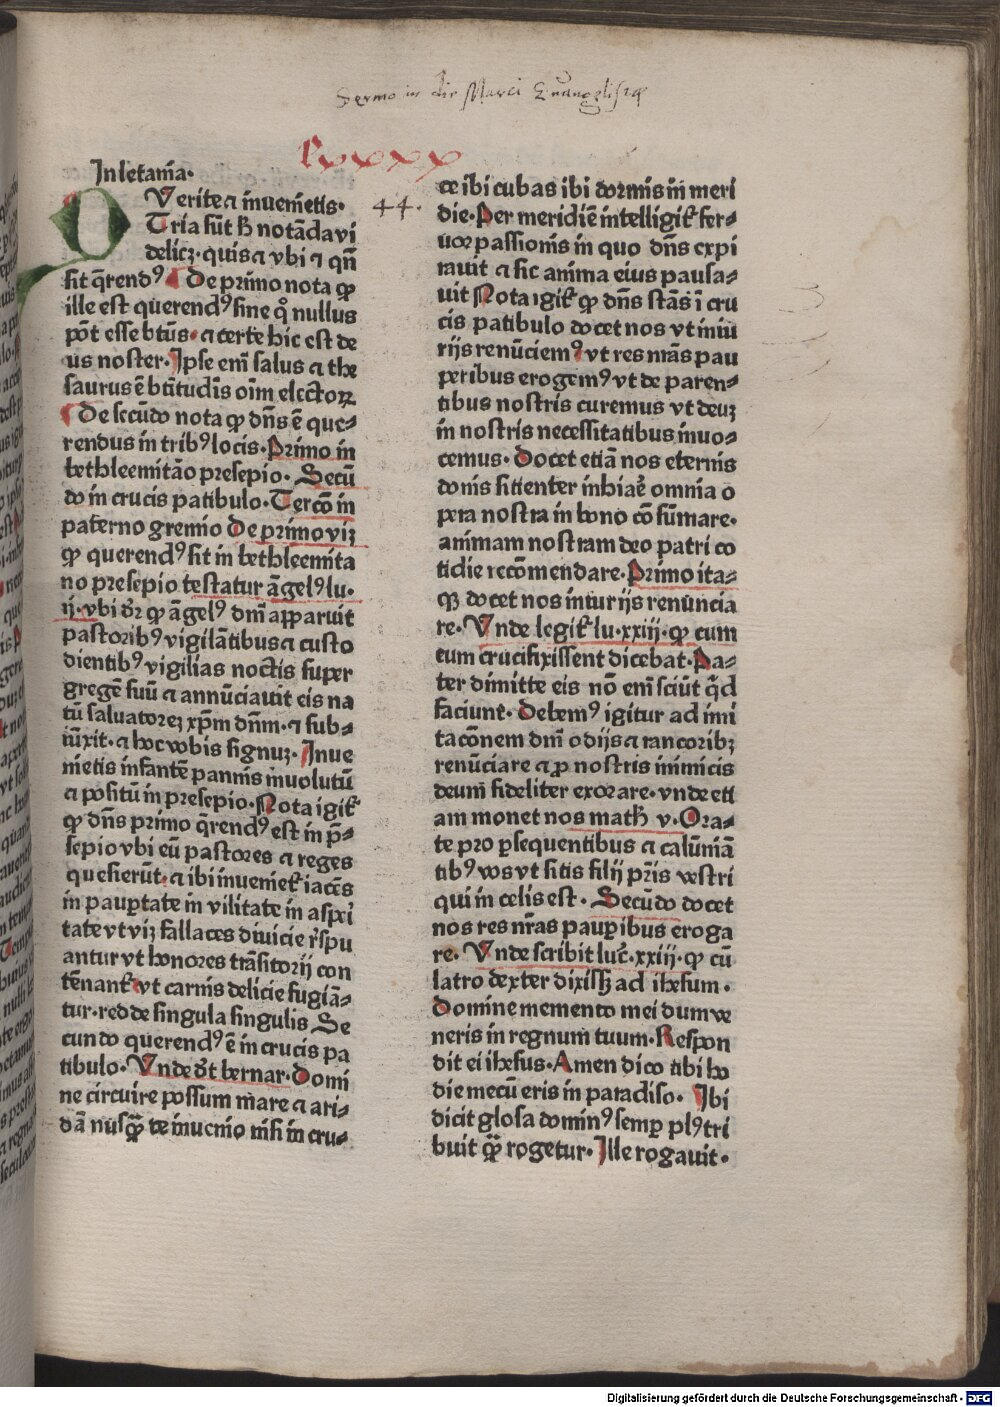 Sermo in die Marci Euangelistae
lxxxx
44.
In letania.
QVerite ⁊ inuenietis.
Tria sūt hͥ notāda vi
delicꝫ. quis ⁊ vbi ⁊ qn̄
sit q̄rendꝰ De primo nota ꝙ
ille est querendꝰ sine qͦ nullus
pōt esse btūs. ⁊ certe hic est de
us noster. Ipse eni̅ salus ⁊ the
saurus ē btītudīs oīm electoꝝ
De secūdo nota ꝙ dn̄s ē que⸗
rendus in tribꝰ locis. Primo in
bethleemitāo presepio. Secū
do in crucis patibulo. Tercō in
paterno gremio De primo viꝫ
ꝙ querendꝰ sit in bethleemita
no presepio testatur āgelꝰ lu.
ij. vbi dr̄ ꝙ āgelꝰ dn̄i apparuit
pastoribꝰ vigilātibus ⁊ custo
dientibꝰ vigilias noctis super
gregē suū ⁊ annūciauit eis na
tū saluatoreꝫ xp̄m dn̄m. ⁊ sub⸗
iūxit. ⁊ hoc vobis signuꝫ. Inue
nietis infantē pannis inuolutū
⁊ positū in presepio. Nota igit̄
ꝙ dn̄s primo q̄rendꝰ est in p̄⸗
sepio vbi eū pastores ⁊ reges
quesierūt. ⁊ ibi inueniet̄ iacēs
in paup̱tate in vilitate in asp̱i
tate vt viꝫ fallaces diuicie r̄spu
antur vt honores trāsitorij con
tēnant̄ vt carnis delicie fugiā⸗
tur. redde singula singulis Se
cundo querendꝰ ē in crucis pa
tibulo. Vnde dt̄ bernar. Domi
ne circuire possum mare ⁊ ari⸗
dā nusq̄ꝫ te inuenio nisi in cru⸗
ce ibi cubas ibi dormis in meri
die. Per meridiē intelligit̄ fer⸗
uor passionis in quo dn̄s expi
rauit ⁊ sic anima eius pausa⸗
uit Nota igit̄ ꝙ dn̄s stās ī cru
cis patibulo docet nos vt iniu
rijs renūciemꝰ vt res nr̄as pau
peribus erogemꝰ vt de paren⸗
tibus nostris curemus vt deuꝫ
in nostris necessitatibus inuo⸗
cemus. Docet etiā nos eternis
donis sitienter inhiaē omnia o
pera nostra in bono cōsūmare.
animam nostram deo patri co
tidie recōmendare. Primo ita⸗
qꝫ docet nos iniurijs renuncia
re. Vnde legit̄ lu. xxiij. ꝙ cum
eum crucifixissent dicebat. Pa⸗
ter dimitte eis nō eni̅ sciūt q̇d
faciunt. Debemꝰ igitur ad imi
tacōnem dn̄i odijs ⁊ rancoribꝫ
renūciare ⁊ ꝓ nostris inimicis
deum fideliter exorare. vnde eti
am monet nos math̄ v. Ora⸗
te pro p̱sequentibus ⁊ calūniā
tibꝰ vos vt sitis filij pr̄is vestri
qui in celis est. Secūdo docet
nos res nr̄as paup̱ibus eroga
re. Vnde scribit luc̄. xxiij. ꝙ cū
latro dexter dixissꝫ ad ihesum.
Domine memento mei dum ve
neris in regnum tuum. Respon
dit ei ihesus. Amen dico tibi ho
die mecū eris in paradiso. Ibi
dicit glosa dominꝰ semp̱ plꝰ tri
buit q̄ꝫ rogetur. Ille rogauit.
Digitalisierung gefördert durch die Deutsche Forschungsgemeinschaft - DFG